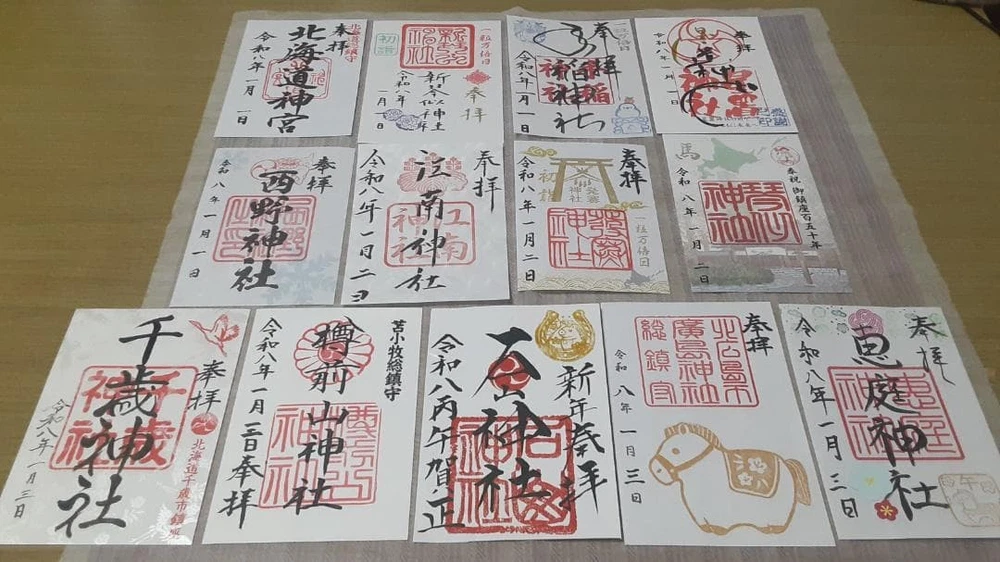 北海道総鎮守
奉拝
北海道神宮
令和八年一月一日
一粒万倍日
初詣
奉拝
新琴似神社
令和八年
一月一日
奉拝
稲神社
令和八年一月一日
奉拝
令和八年一月一日
奉拝
西野神社
令和八年一月一日
奉拝
江南神社
江南神社
令和八年一月二日
奉拝
初詣
発寒神社
一粒万倍日
令和八年一月二日
馬
奉祝御鎮座百五十年
琴似神社
令和八年一月二日
奉拝
千歳神社
千歳神社
北海道千歳市鎮座
令和八年一月三日
苫小牧総鎮守
樽前山神社
令和八年一月三日奉拝
新年奉拝
石山神社
令和八丙午賀正
奉拝
北広島市
廣島神社
総鎮守
令和八年一月三日
奉拝
恵庭神社
令和八年一月三日
午